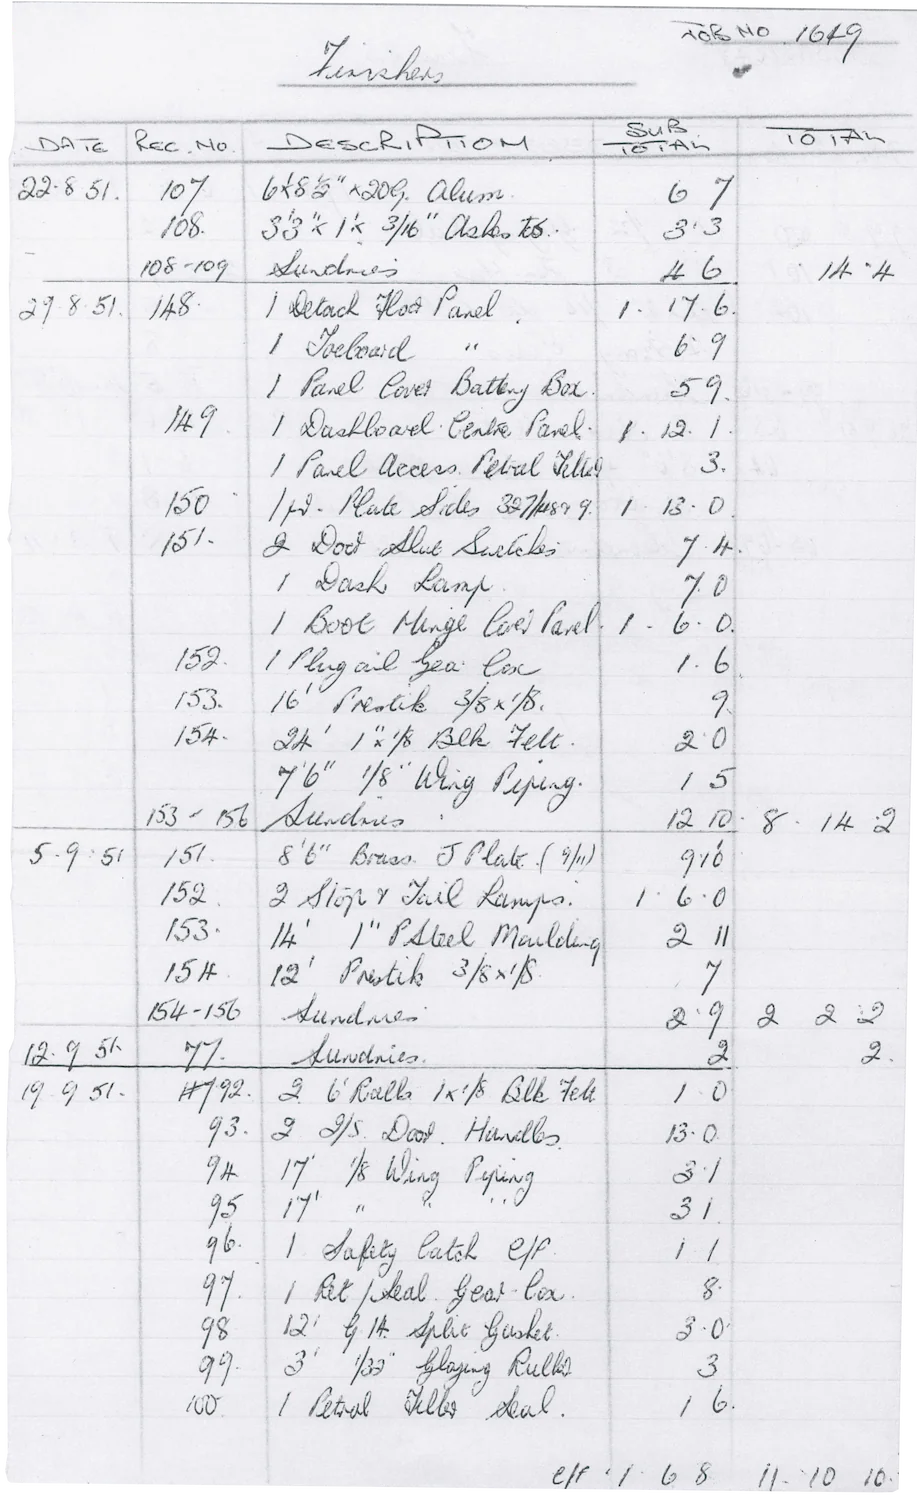 JOB NO. 1649
Finishers
DATE REC. NO. DESCRIPTION SUB TOTAL TOTAL
22·8·51. 107 6'x8½"x20G. Alum. 6 7
108. 3'3"x 1'x 3/16" Asbestos. 3·3
108-109 Sundries 4 6 14·4
29·8·51. 148. 1 Detach Floor Panel. 1·17·6.
1 Toeboard " 6 9
1 Panel Cover Battery Box. 5 9.
149 1 Dashboard Centre Panel. 1·12·1.
1 Panel Access. Petrol Filler 3.
150 1 pr. Plate Sides 327/489 9. 1·13·0
151. 2 Door Shut Switches 7·4.
1 Dash Lamp. 7 0
1 Boot Hinge Cover Panel. 1·6·0.
152. 1 Plug oil Gear Cox 1·6
153. 16' Prestik 3/8x1/8. 9.
154. 24' 1"x1/8 Blk Felt. 2 0
7'6" 1/8" Wing Piping. 1 5
153-156 Sundries 12 10. 8·14·2
5·9·51 151. 8'6" Brass J Plate. (9/11) 9 10
152. 2 Stop & Tail Lamps. 1·6·0
153. 14' 1" P Steel Moulding 2 11
154. 12' Prestik 3/8x1/8. 7
154-156 Sundries 2·9 2 2 2
12·9 51. 77. Sundries. 2 2.
19·9 51. 792. 2 6' Rolls 1x1/8 Blk Felt 1 0
93. 2 2/S. Door. Handles. 13·0
94 17' 1/8 Wing Piping 3·1
95 17' " " " 3 1.
96. 1 Safety Catch c/f. 1 1
97. 1 Ret/Seal. Gear-Cox. 8.
98 12' G 14. Split Gasket. 3·0
99. 3' 1/32" Glazing Rubber 3
100. 1 Petrol Filler Seal. 1 6.
c/f 1·6 8 11·10 10.